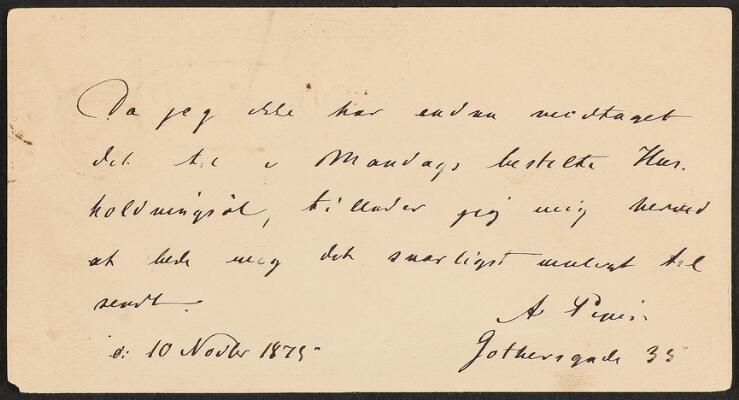 Da jeg ikke har endnu modtaget
det til i Mandags bestilte Hus-
holdningsøl, tillader jeg mig herved
at bede mig det snarligst muligt til
sendt.
A
d: 10 Novbr 1875
Gothersgade 35